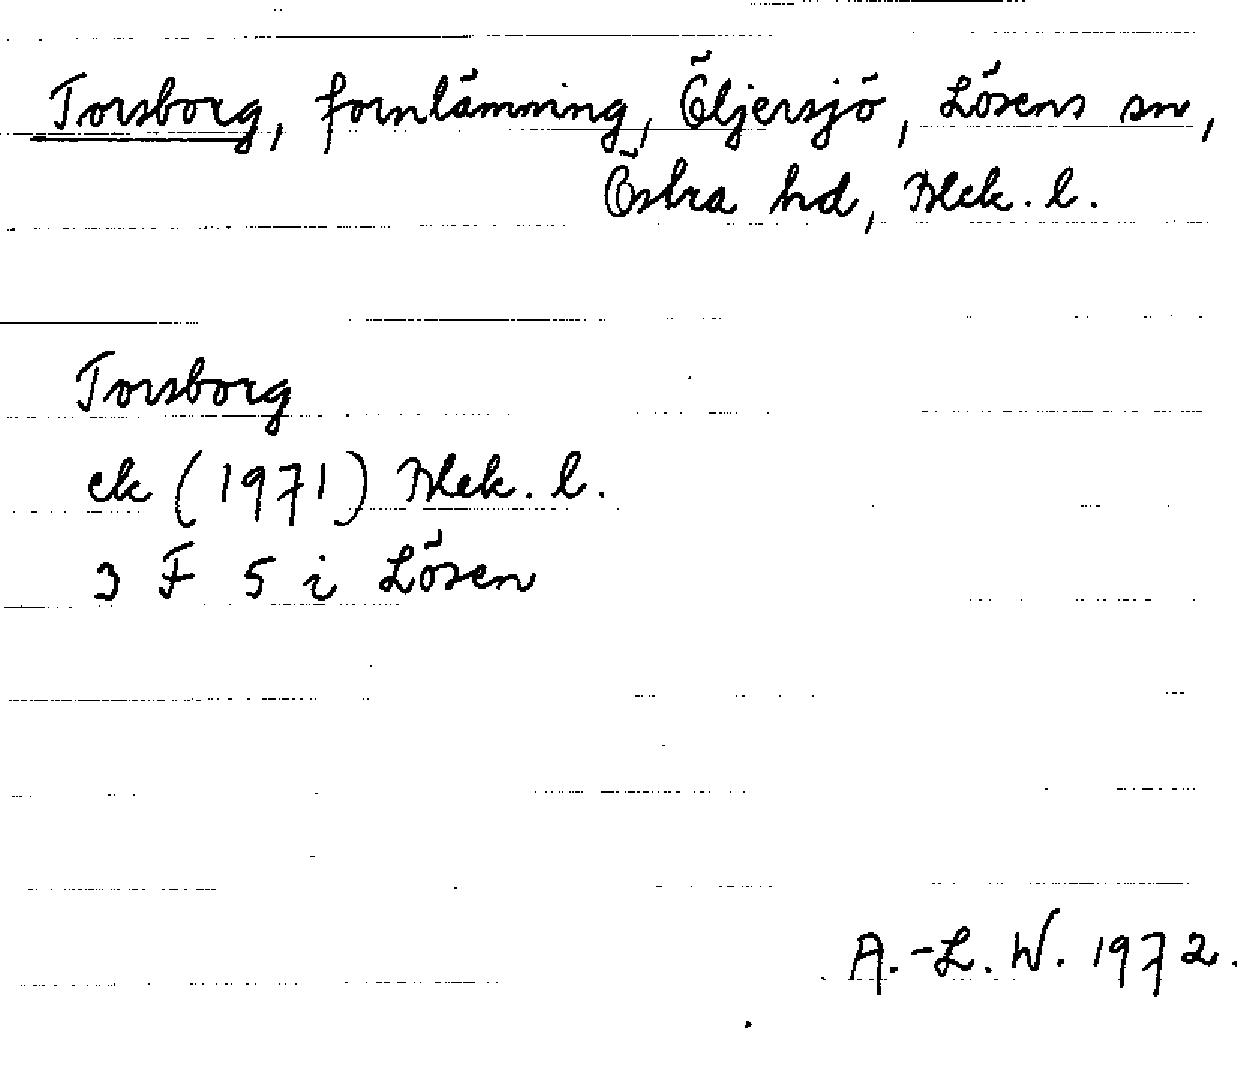 Torsborg, fornlämning, Öljersjö, Lösens sn,
Östra hd, Blek. l.
Torsborg
ek (1971) Blek. l.
3 F 5 i Lösen
A.-L. W. 1972.